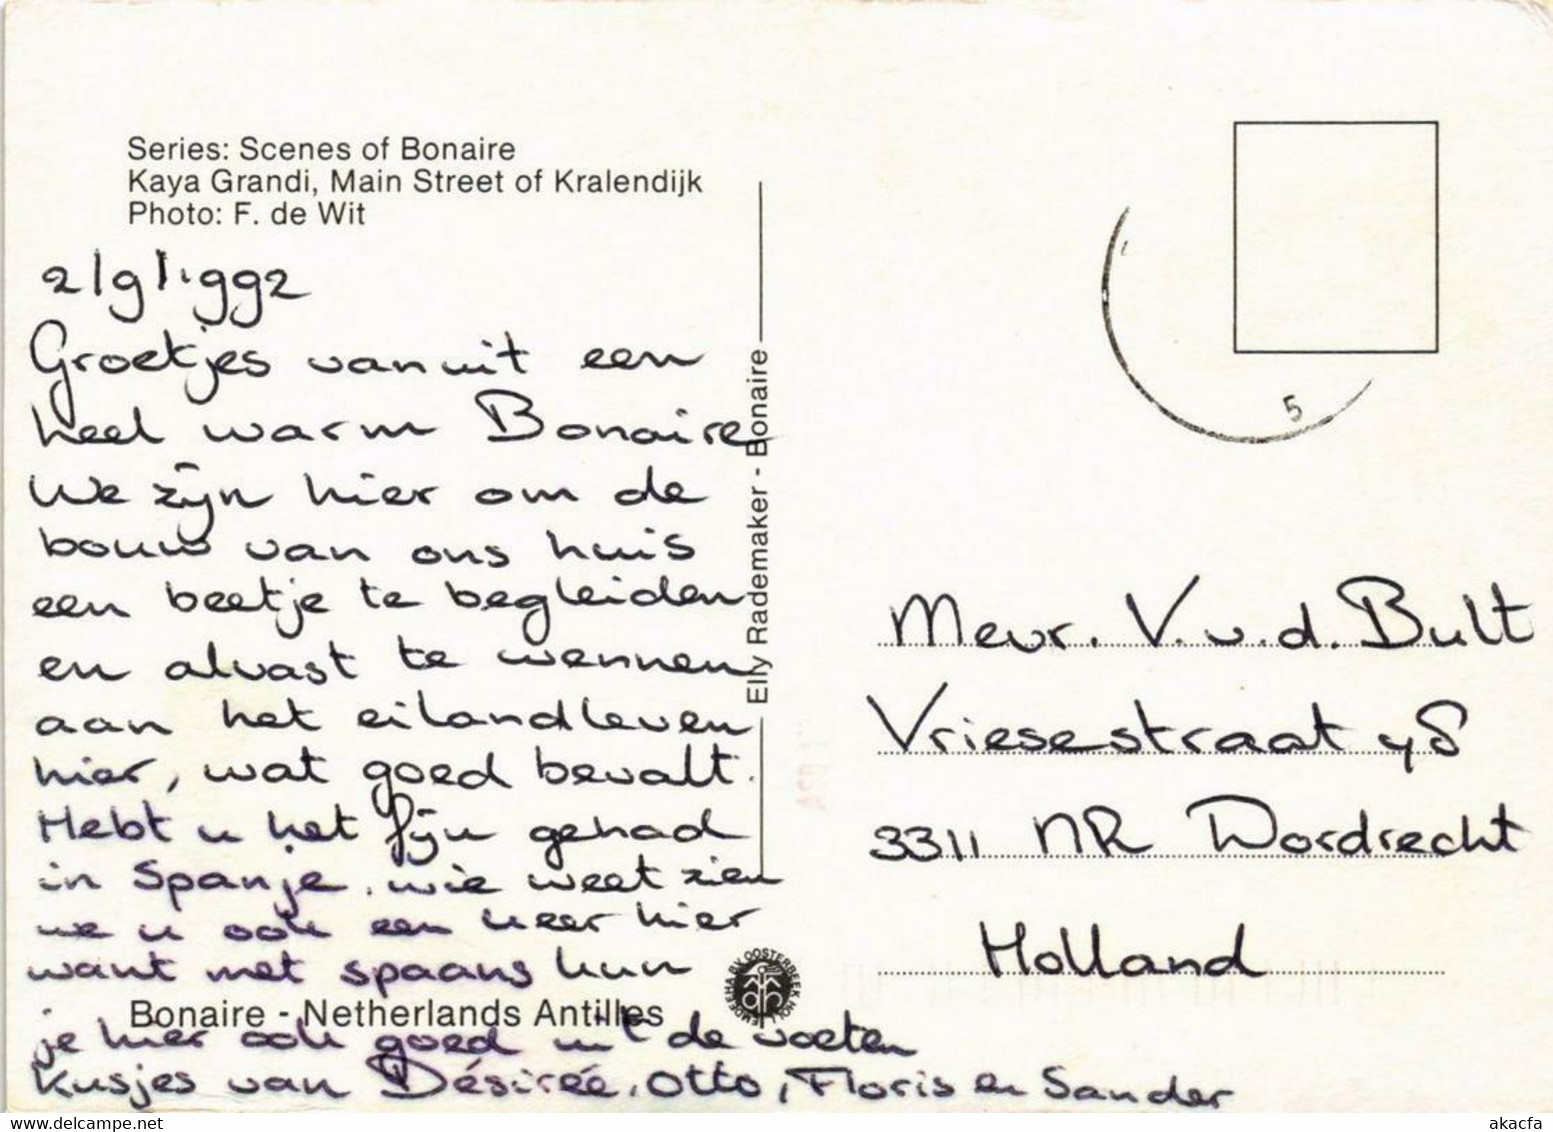 Series: Scenes of Bonaire
Kaya Grandi, Main Street of Kralendijk
Photo: F. de Wit
2/9/1992
Groetjes vanuit een
heel warm Bonaire
We zijn hier om de
bouw van ons huis
een beetje te begleiden
en alvast te wennen
aan het eilandleven
hier, wat goed bevalt.
Hebt u het fijn gehad
in Spanje. wie weet zien
we u ook een keer hier
want met spaans kun
je hier ook goed uit de voeten
Kusjes van Désirée, Otto, Floris en Sander
Bonaire - Netherlands Antilles
Elly Rademaker - Bonaire
EMDEEHA B.V. OOSTERBEEK HOLL
5
Mevr. V. v. d. Bult
Vriesestraat 48
3311 NR Dordrecht
Holland
www.delcampe.net
akacfa